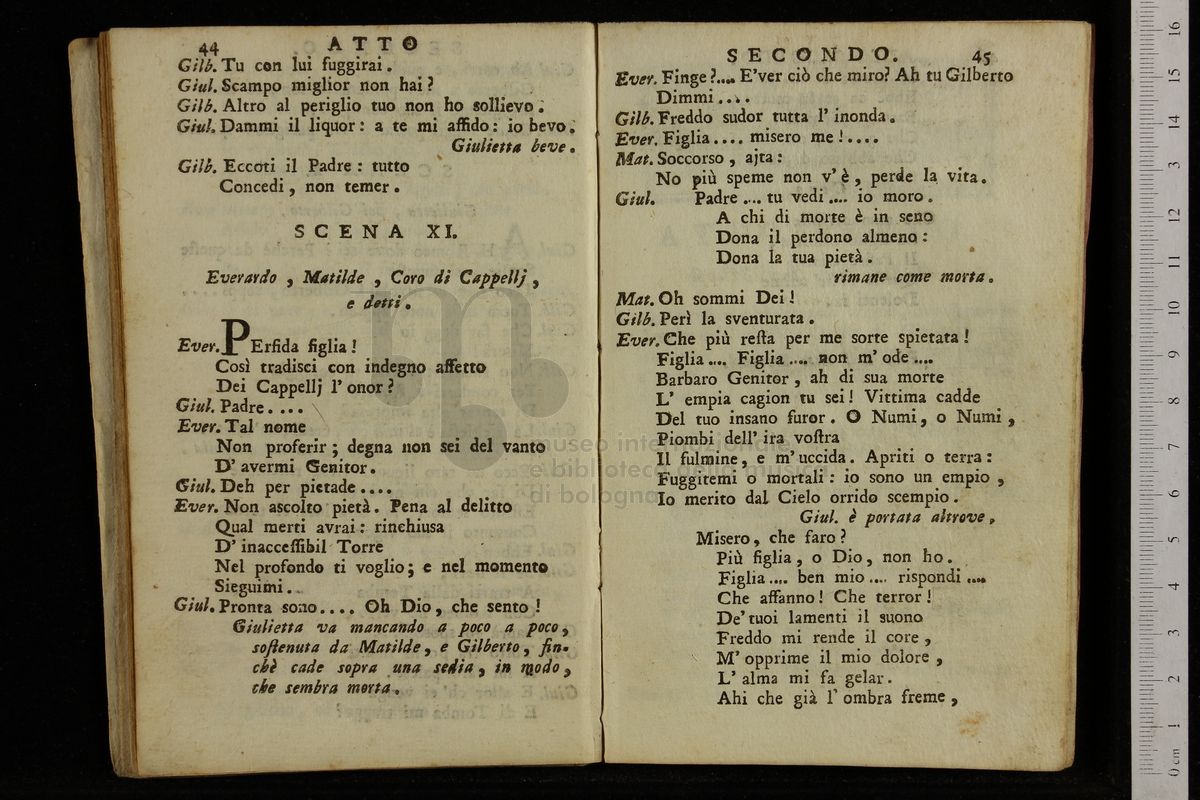 44 ATTO
Gilb. Tu con lui fuggirai.
Giul. Scampo miglior non hai?
Gilb. Altro al periglio tuo non ho sollievo.
Giul. Dammi il liquor: a te mi affido: io bevo.
Giulietta beve.
Gilb. Eccoti il Padre: tutto
Concedi, non temer.
SCENA XI.
Everardo, Matilde, Coro di Cappellj,
e detti.
Ever. PErfida figlia!
Così tradisci con indegno affetto
Dei Cappellj l'onor?
Giul. Padre....
Ever. Tal nome
Non proferir; degna non sei del vanto
D'avermi Genitor.
Giul. Deh per pietade....
Ever. Non ascolto pietà. Pena al delitto
Qual merti avrai: rinchiusa
D'inaccessibil Torre
Nel profondo ti voglio; e nel momento
Sieguimi..
Giul. Pronta sono.... Oh Dio, che sento!
Giulietta va mancando a poco a poco,
sostenuta da Matilde, e Gilberto, fin-
chè cade sopra una sedia, in modo,
che sembra morta.
SECONDO. 45
Ever. Finge?.... E'ver ciò che miro? Ah tu Gilberto
Dimmi....
Gilb. Freddo sudor tutta l'inonda.
Ever. Figlia.... misero me!....
Mat. Soccorso, ajta:
No più speme non v'è, perde la vita.
Giul. Padre.... tu vedi.... io moro.
A chi di morte è in seno
Dona il perdono almeno:
Dona la tua pietà.
rimane come morta.
Mat. Oh sommi Dei!
Gilb. Perì la sventurata.
Ever. Che più resta per me sorte spietata!
Figlia.... Figlia.... non m'ode....
Barbaro Genitor, ah di sua morte
L'empia cagion tu sei! Vittima cadde
Del tuo insano furor. O Numi, o Numi,
Piombi dell'ira vostra
Il fulmine, e m'uccida. Apriti o terra:
Fuggitemi o mortali: io sono un empio,
Io merito dal Cielo orrido scempio.
Giul. è portata altrove.
Misero, che faro?
Più figlia, o Dio, non ho.
Figlia.... ben mio.... rispondi....
Che affanno! Che terror!
De'tuoi lamenti il suono
Freddo mi rende il core,
M'opprime il mio dolore,
L'alma mi fa gelar.
Ahi che già l'ombra freme,
museo internazionale
e biblioteca della musica
di bologna
0 cm 1 2 3 4 5 6 7 8 9 10 11 12 13 14 15 16